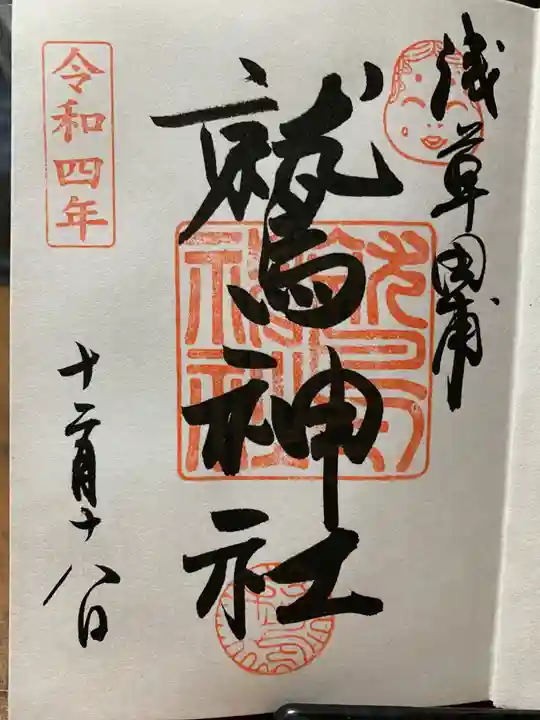 浅草田甫
鷲神社
令和四年
十二月十八日